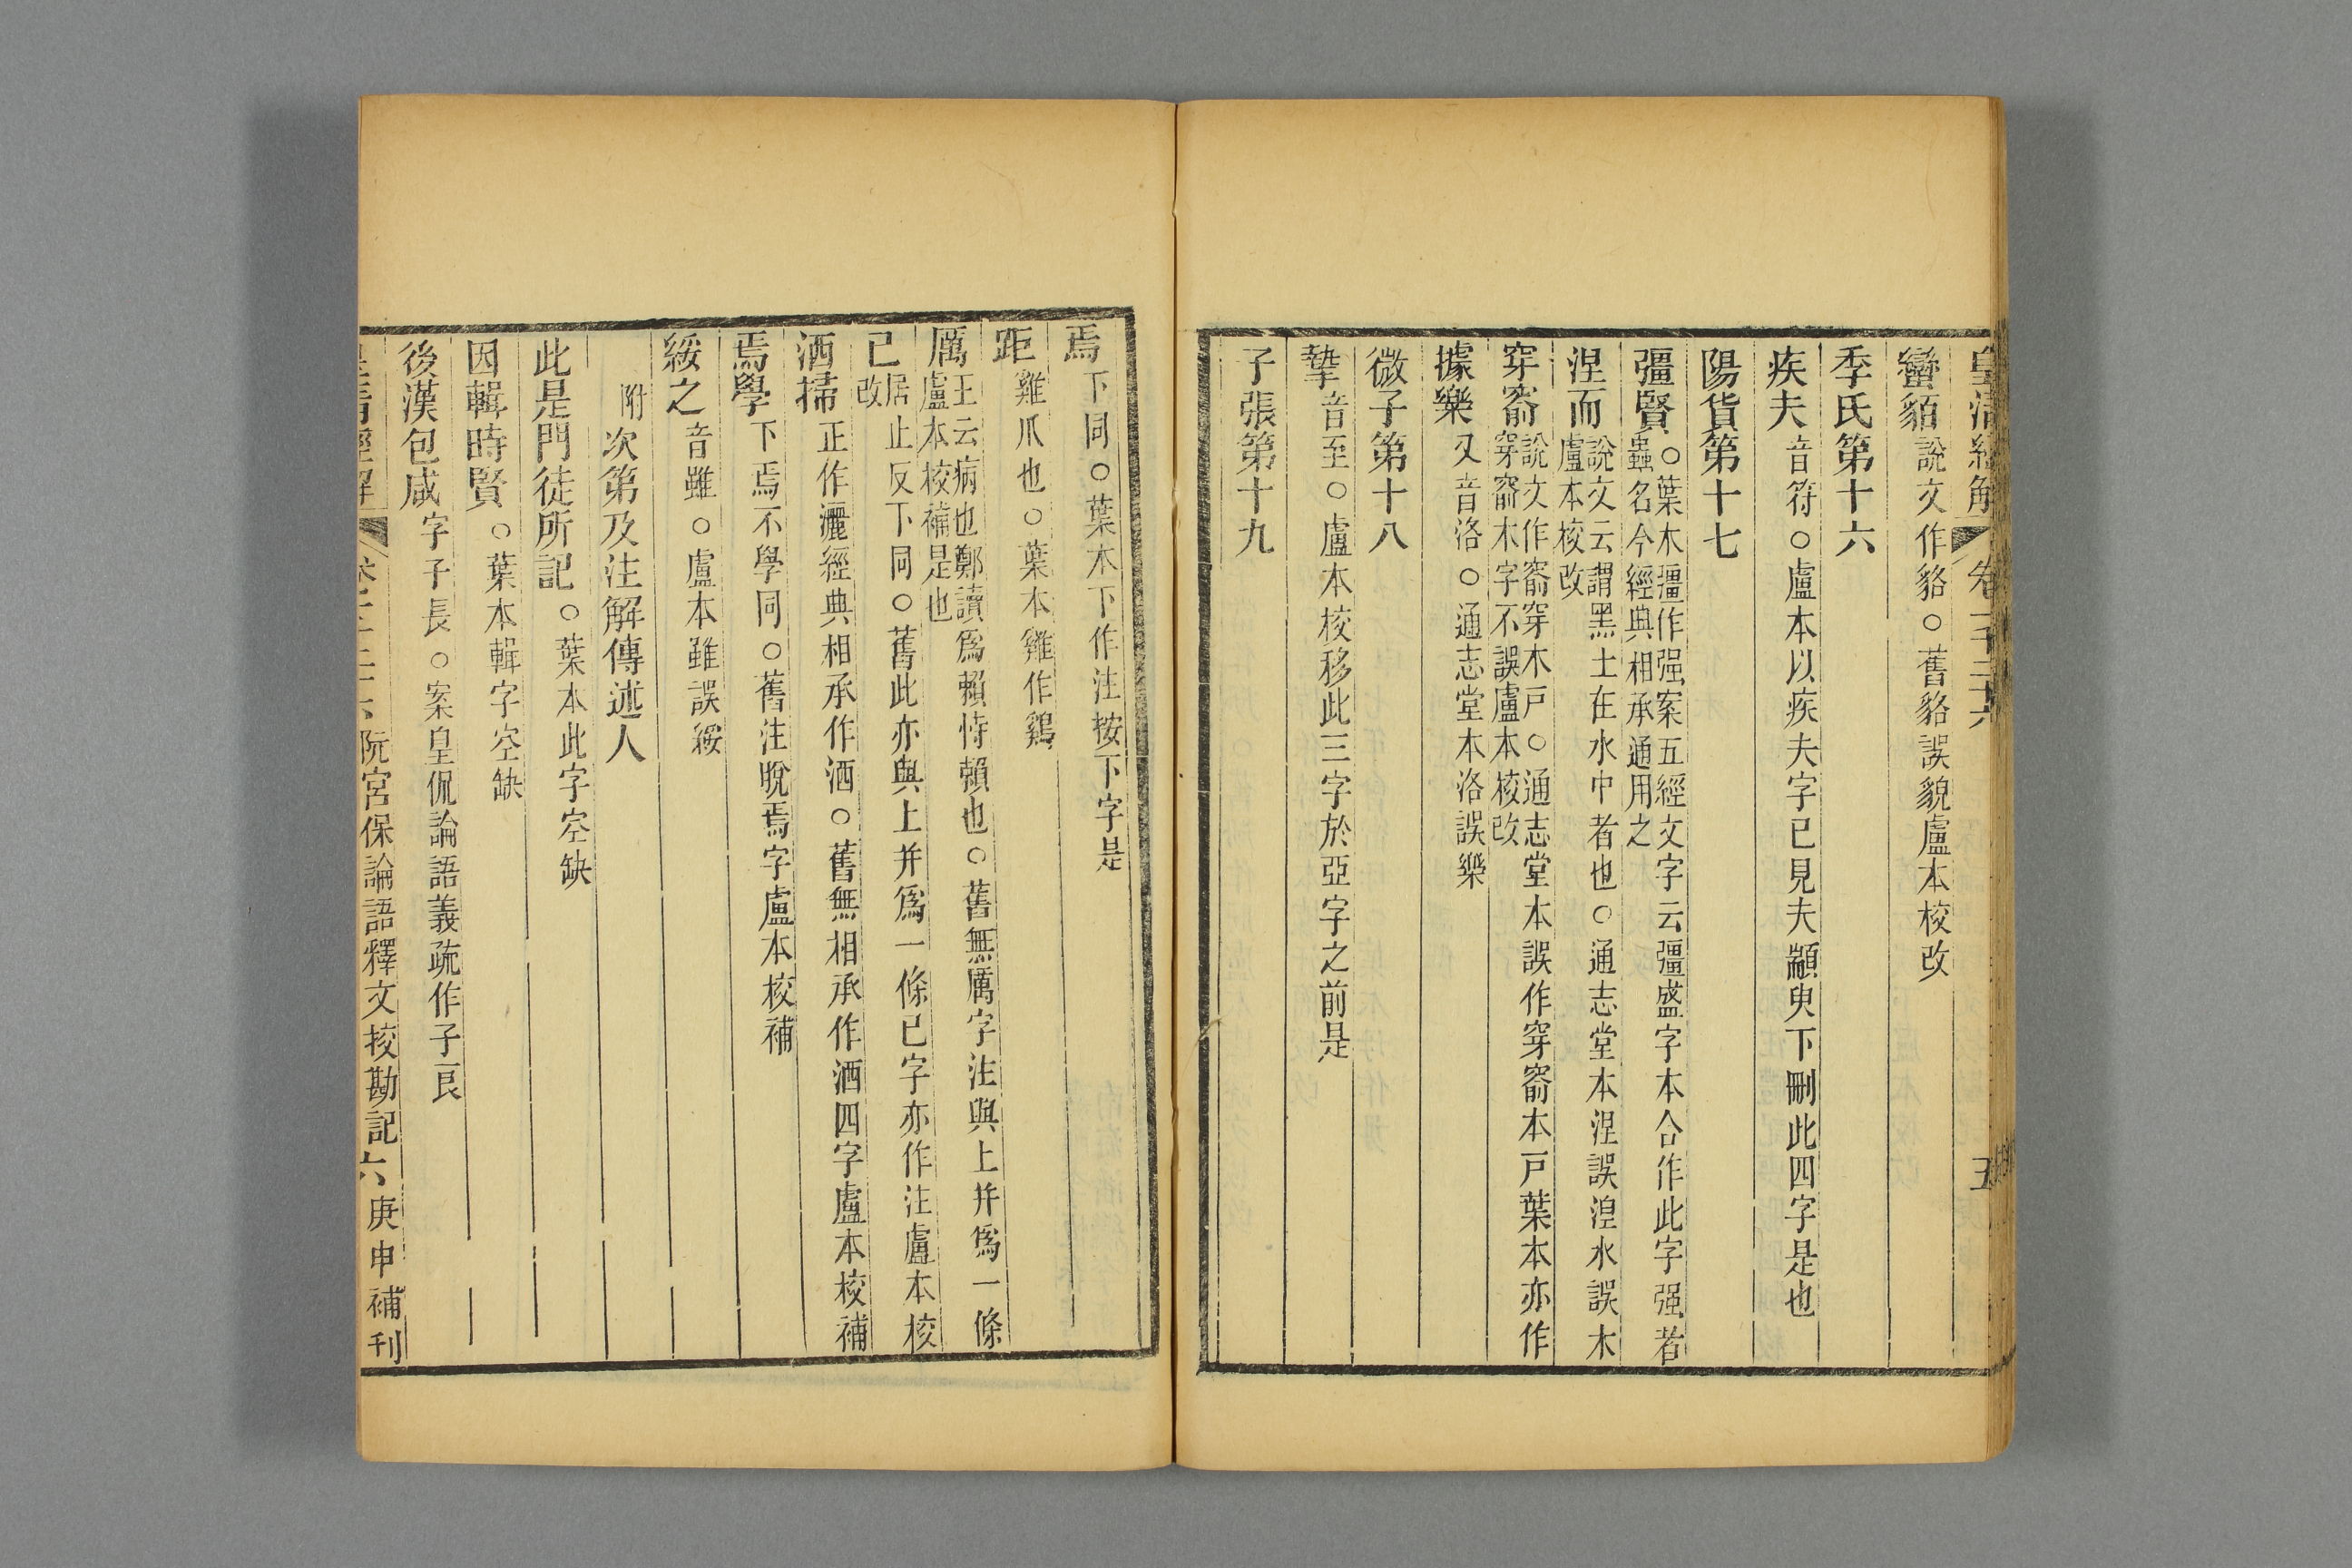 皇清經解 卷一千二十六 五
蠻貊說文作貉○舊貉誤貌盧本校改
季氏第十六
疾夫音符○盧本以疾夫字已見夫顓臾下刪此四字是也
陽貨第十七
彊賢○葉本彊作强案五經文字云彊盛字本合作此字强者
蟲名今經典相承通用之
涅而說文云謂黑土在水中者也○通志堂本涅誤湼水誤木
盧本校改
穿窬說文作窬穿木戶○通志堂本誤作穿窬本戸葉本亦作
穿窬木字不誤盧本校改
據樂又音洛○通志堂本洛誤樂
微子第十八
摯音至○盧本校移此三字於亞字之前是
子張第十九
焉下同○葉本下作注按下字是
距雞爪也○葉本雞作鷄
厲王云病也鄭讀爲賴恃賴也○舊無厲字注與上并爲一條
盧本校補是也
已居止反下同○舊此亦與上并爲一條已字亦作注盧本校
改
洒掃正作灑經典相承作洒○舊無相承作洒四字盧本校補
焉學下焉不學同○舊注脫焉字盧本校補
綏之音雖○盧本雖誤綏
附次第及注解傳述人
此是門徒所記○葉本此字空缺
因輯時賢○葉本輯字空缺
後漢包咸字子長○案皇侃論語義疏作子良
皇清經解 卷千二十六阮宮保論語釋文挍勘記 六 庚申補刊